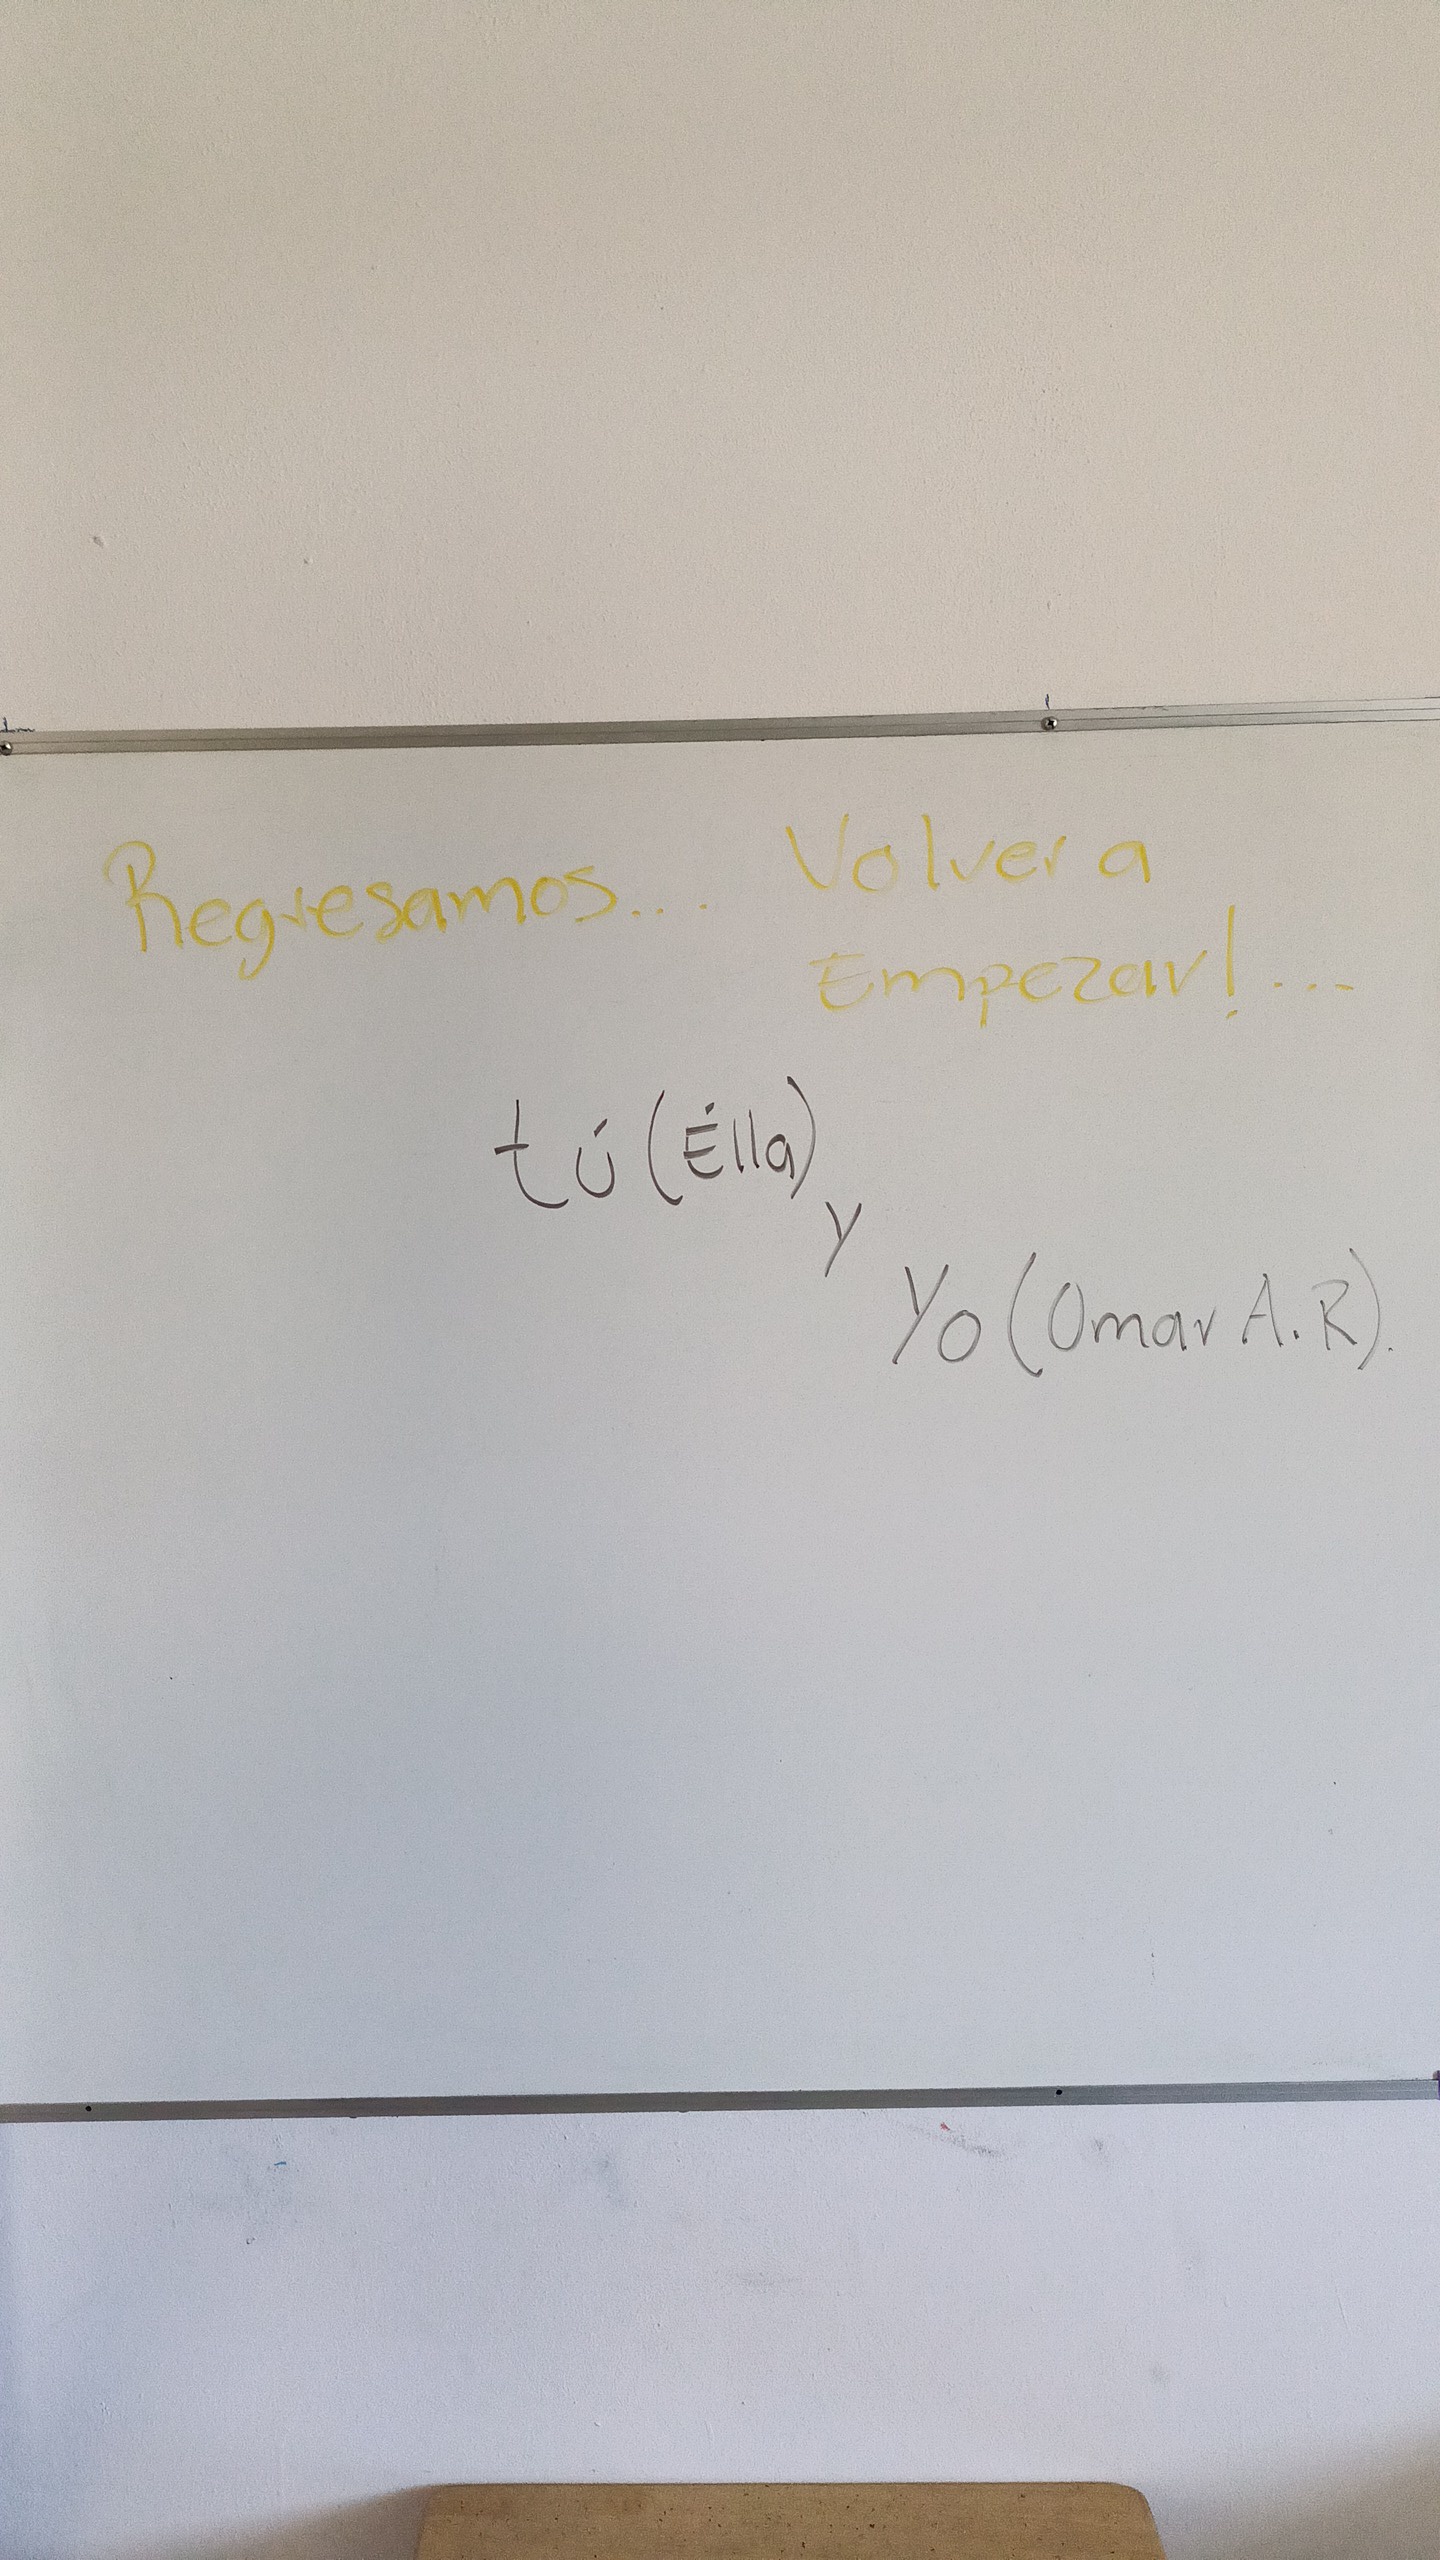 Regresamos... Volver a
Empezar!...
tú (Élla)
y
Yo (Omar A.R).